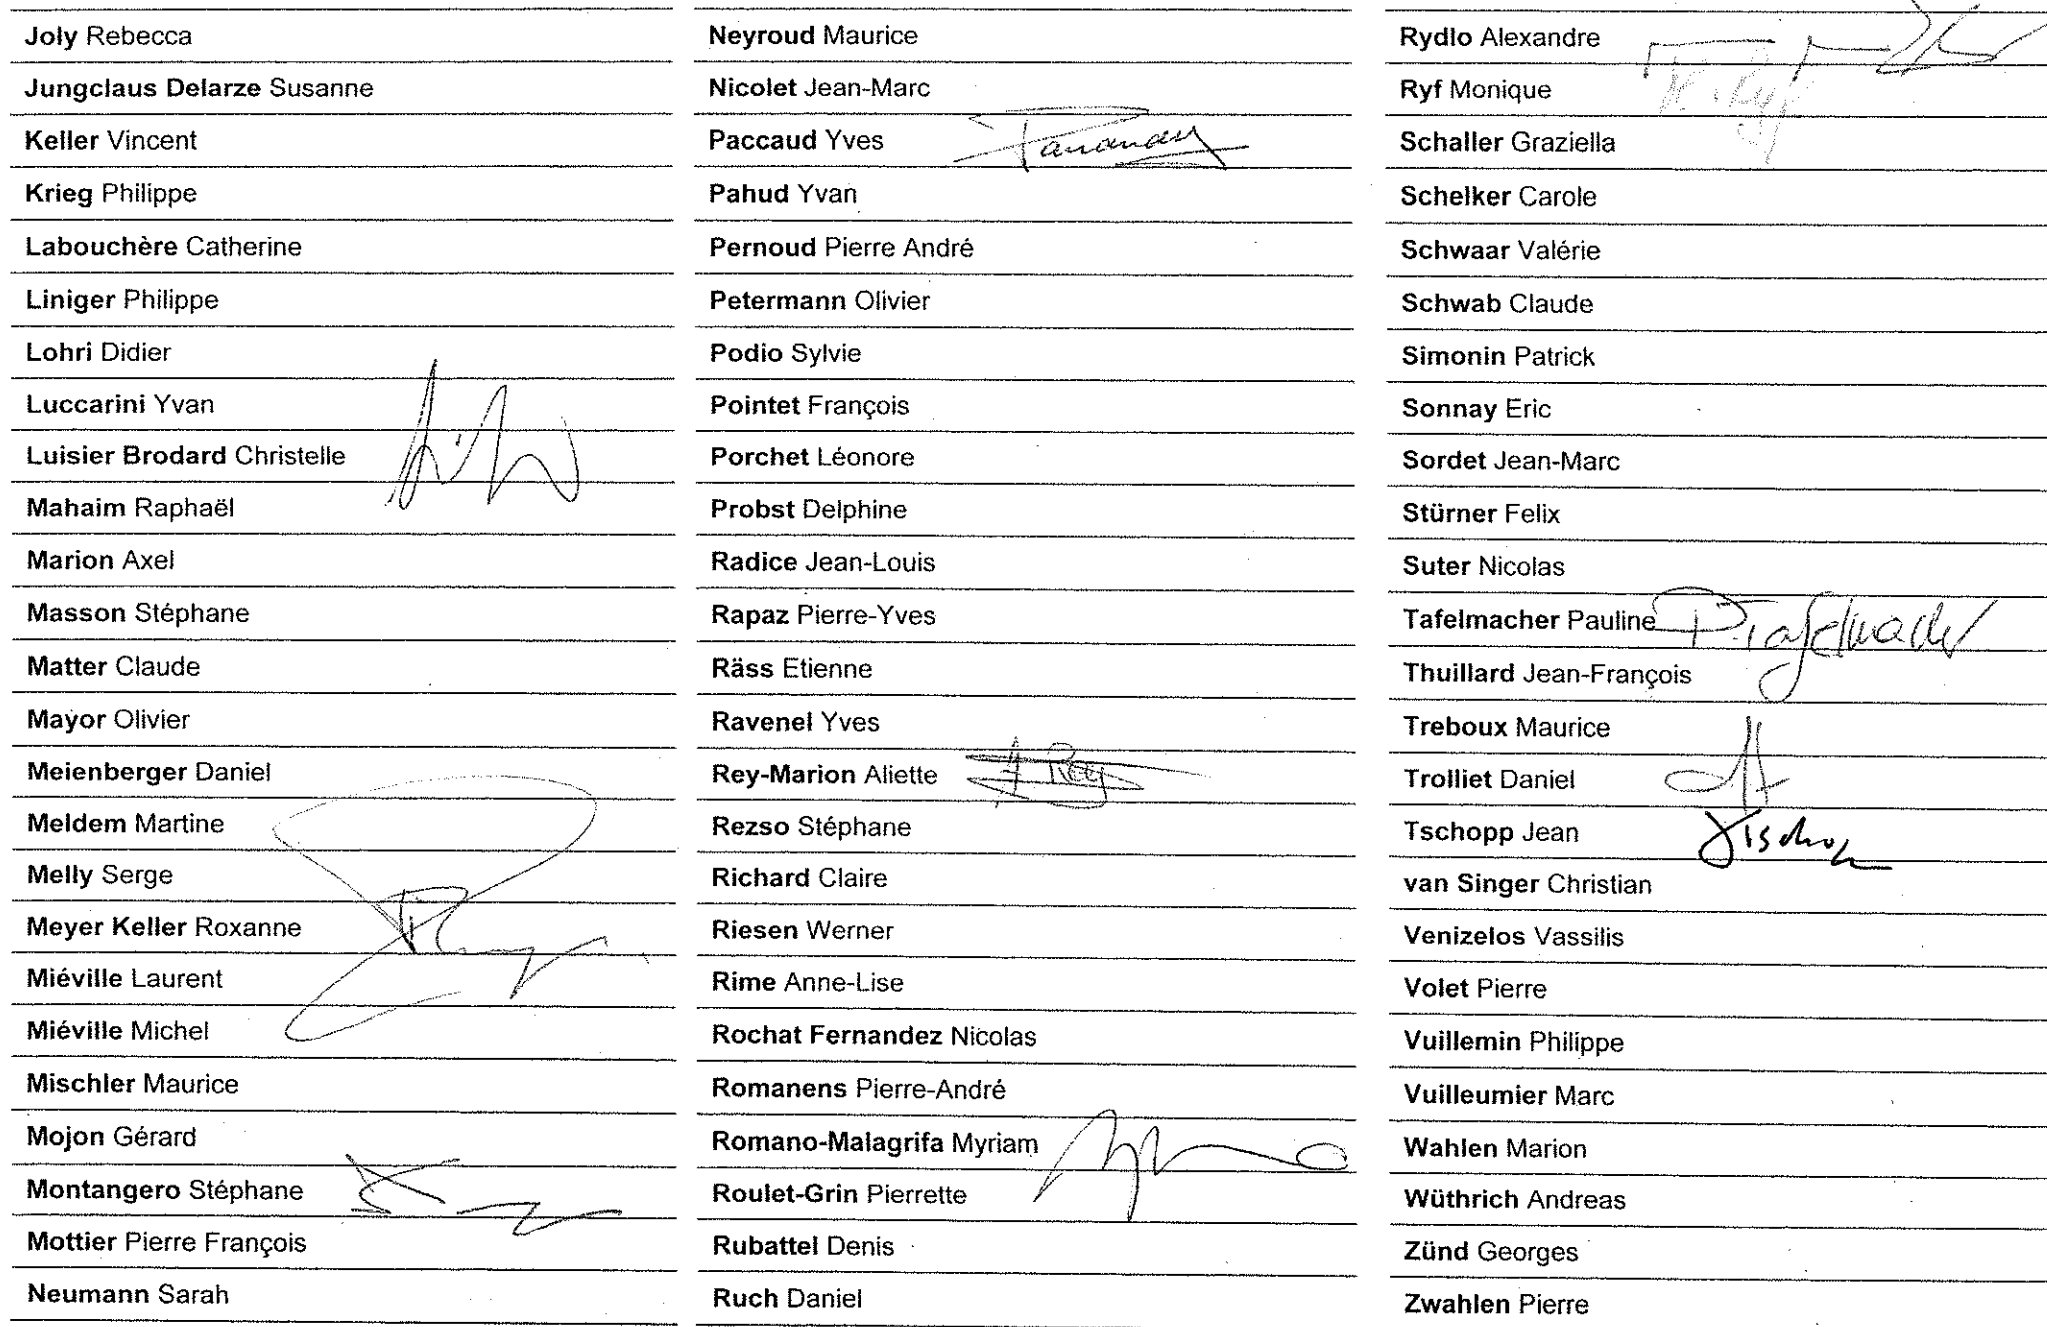 Joly Rebecca
Jungclaus Delarze Susanne
Keller Vincent
Krieg Philippe
Labouchère Catherine
Liniger Philippe
Lohri Didier
Luccarini Yvan
Luisier Brodard Christelle
Mahaim Raphaël
Marion Axel
Masson Stéphane
Matter Claude
Mayor Olivier
Meienberger Daniel
Meldem Martine
Melly Serge
Meyer Keller Roxanne
Miéville Laurent
Miéville Michel
Mischler Maurice
Mojon Gérard
Montangero Stéphane
Mottier Pierre François
Neumann Sarah
Neyroud Maurice
Nicolet Jean-Marc
Paccaud Yves
Pahud Yvan
Pernoud Pierre André
Petermann Olivier
Podio Sylvie
Pointet François
Porchet Léonore
Probst Delphine
Radice Jean-Louis
Rapaz Pierre-Yves
Räss Etienne
Ravenel Yves
Rey-Marion Aliette A Rey
Rezso Stéphane
Richard Claire
Riesen Werner
Rime Anne-Lise
Rochat Fernandez Nicolas
Romanens Pierre-André
Romano-Malagrifa Myriam
Roulet-Grin Pierrette
Rubattel Denis
Ruch Daniel
Rydlo Alexandre
Ryf Monique M. Ryf
Schaller Graziella
Schelker Carole
Schwaar Valérie
Schwab Claude
Simonin Patrick
Sonnay Eric
Sordet Jean-Marc
Stürner Felix
Suter Nicolas
Tafelmacher Pauline P. Tafelmacher
Thuillard Jean-François
Treboux Maurice
Trolliet Daniel
Tschopp Jean
van Singer Christian
Venizelos Vassilis
Volet Pierre
Vuillemin Philippe
Vuilleumier Marc
Wahlen Marion
Wüthrich Andreas
Zünd Georges
Zwahlen Pierre